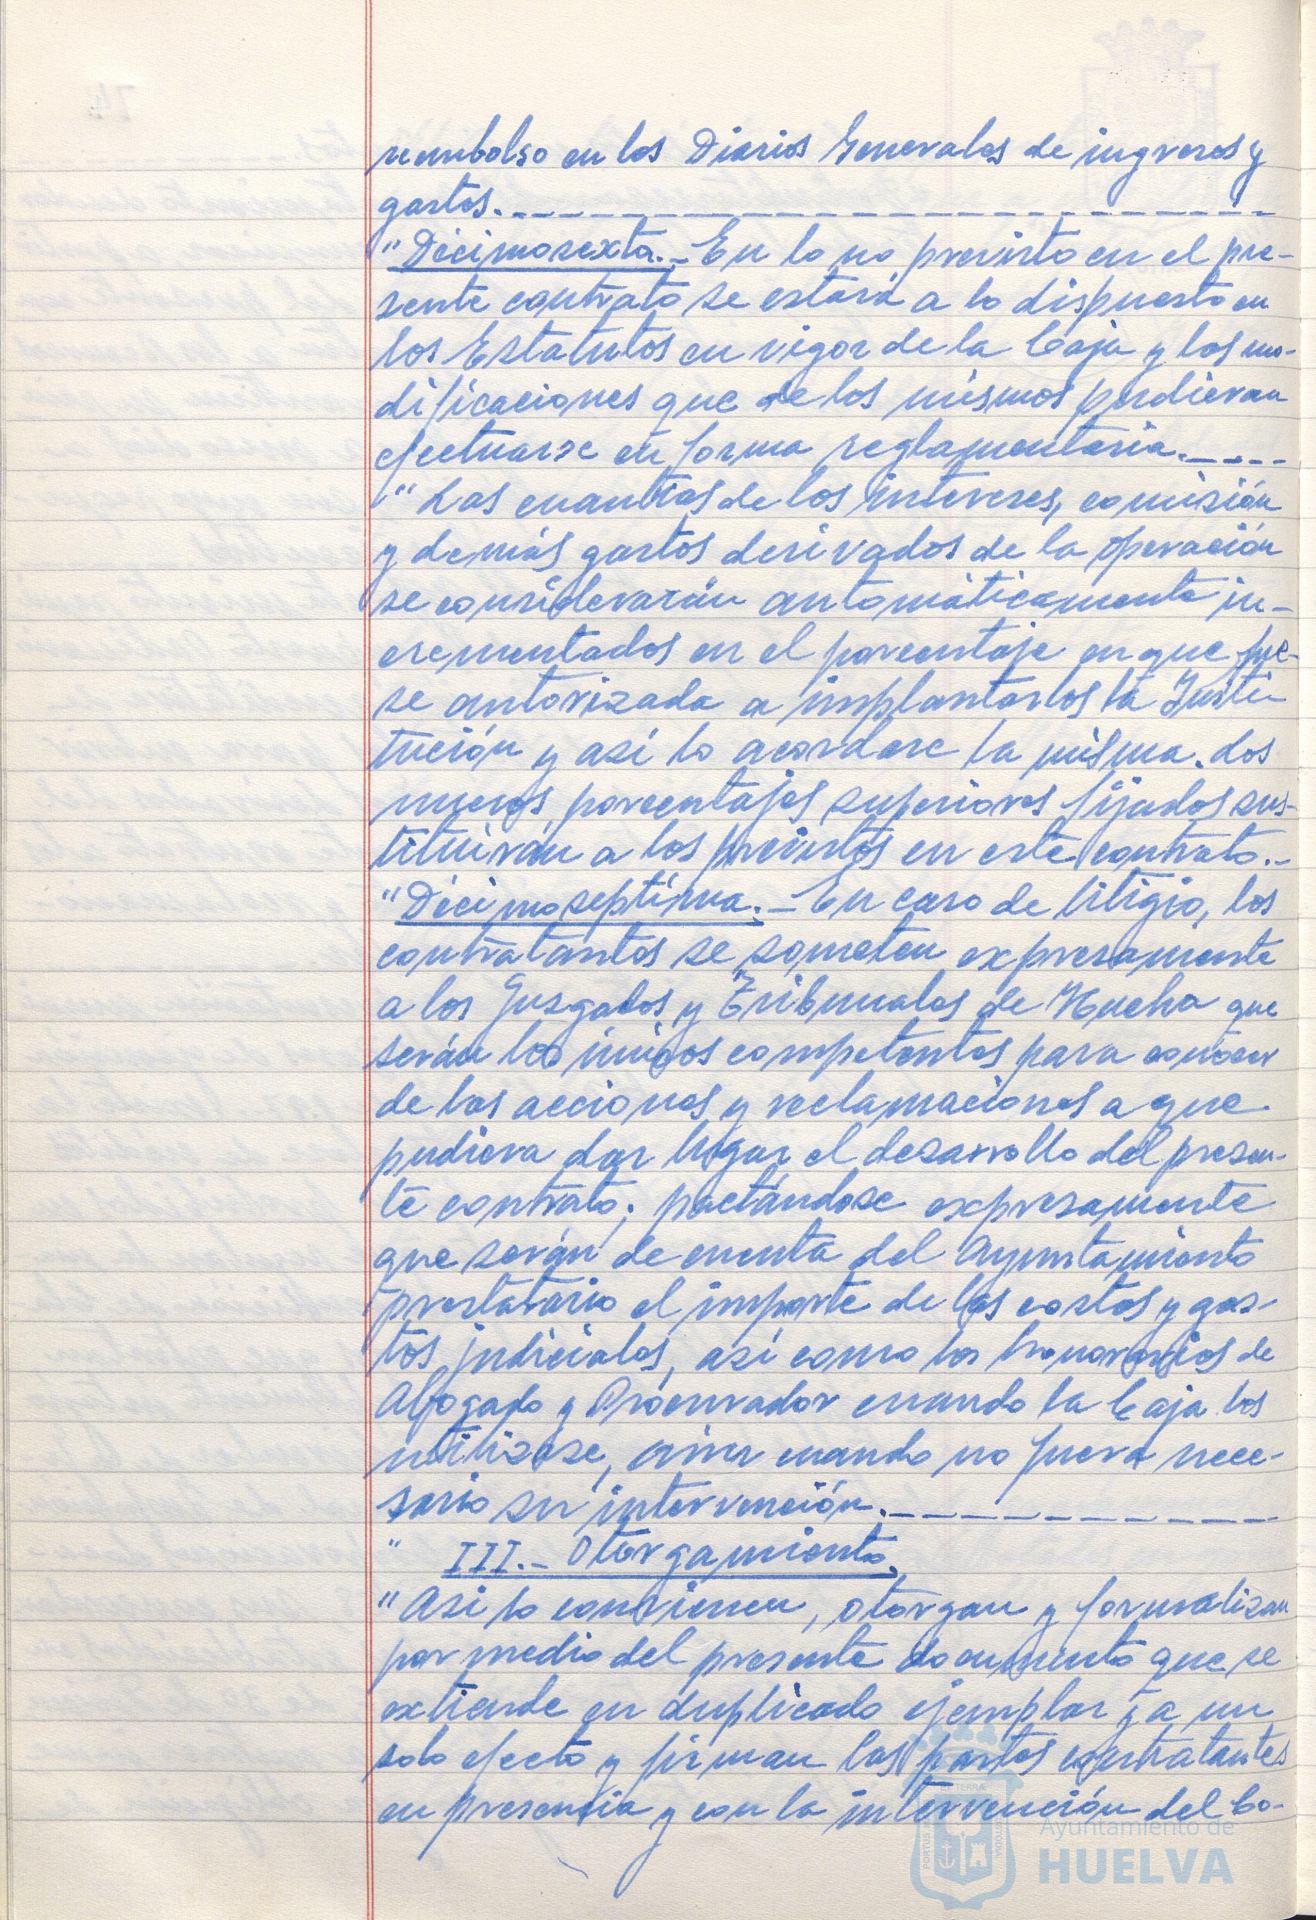 reembolso en los Diarios Generales de ingresos y
gastos.
"Décimosexta.- En lo no previsto en el pre-
sente contrato se estará a lo dispuesto en
los Estatutos en vigor de la Caja y las mo-
dificaciones que de los mismos pudieran
efectuarse en forma reglamentaria.
"Las cuantías de los intereses, comisión
y demás gastos derivados de la operación
se considerarán automáticamente in-
crementados en el porcentaje en que fue-
se autorizada a implantarlos la Insti-
tución y así lo acordase la misma. Los
nuevos porcentajes superiores fijados sus-
tituirán a los previstos en este contrato.-
"Décimoséptima.- En caso de litigio, los
contratantes se someten expresamente
a los Juzgados y Tribunales de Huelva que
serán los únicos competentes para conocer
de las acciones y reclamaciones a que
pudiera dar lugar el desarrollo del presen-
te contrato; pactándose expresamente
que serán de cuenta del Ayuntamiento
prestatario el importe de las costas y gas-
tos judiciales, así como los honorarios de
Abogado y Procurador cuando la Caja los
utilizase, aún cuando no fuera nece-
sario su intervención.
" III.- Otorgamiento.
"Así lo convienen, otorgan y formalizan
por medio del presente documento que se
extiende en duplicado ejemplar y a un
solo efecto y firman las partes contratantes
en presencia y con la intervención del Co-
Ayuntamiento de
HUELVA